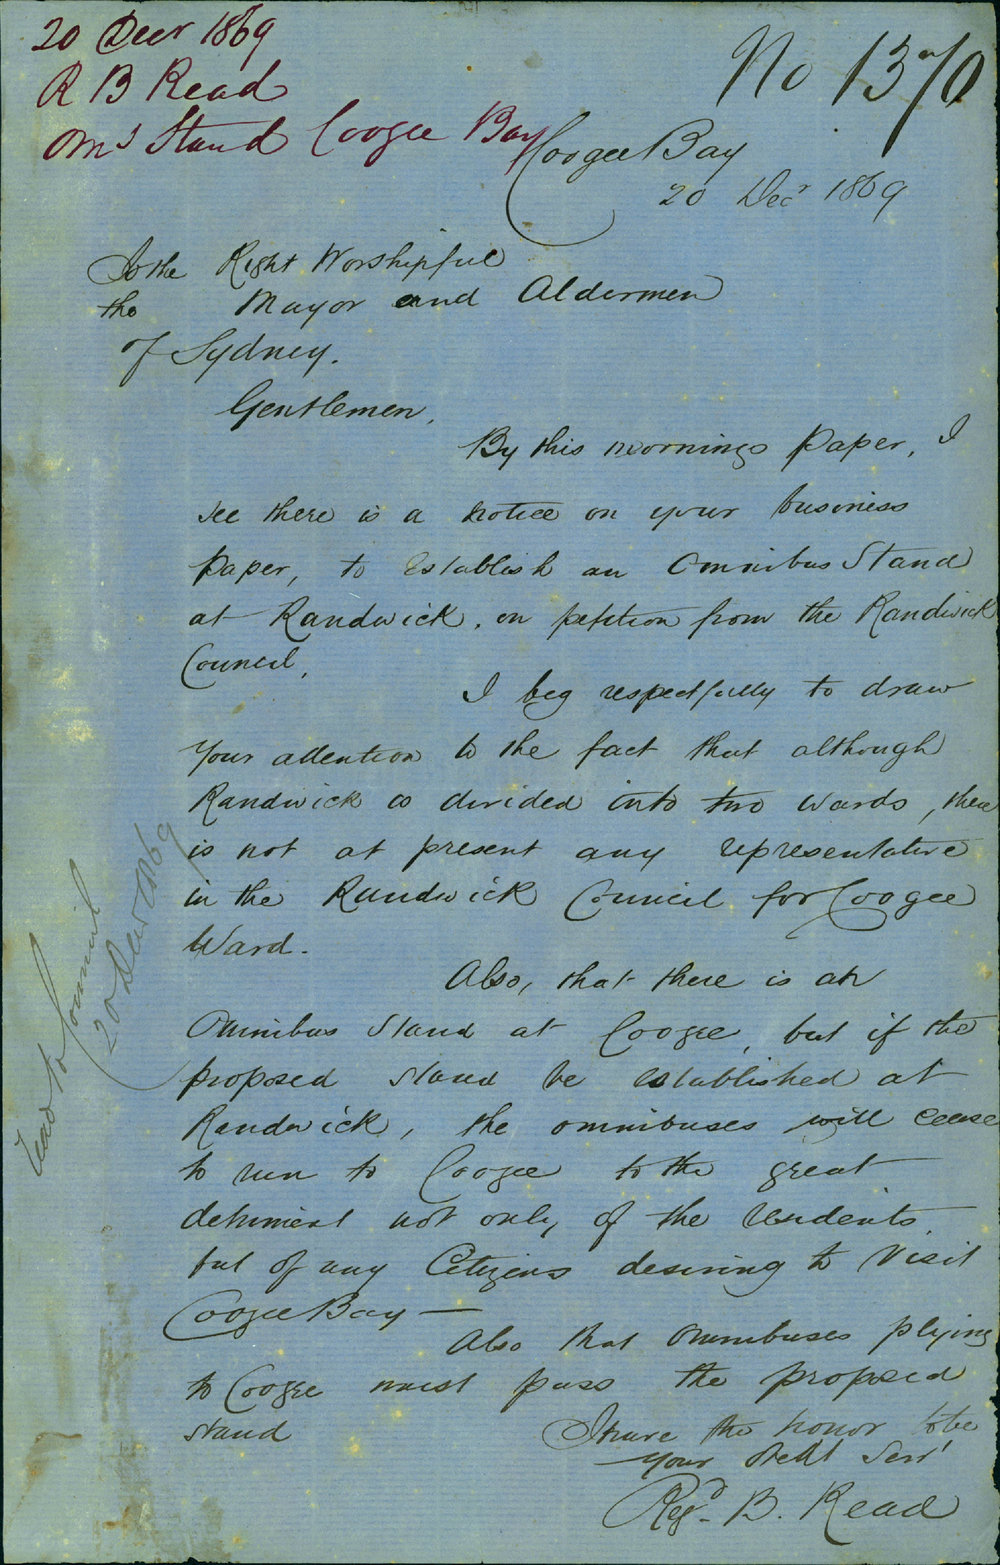 20 Decr 1869
R B Read
Oms Stand Coogee Bay
No 1370
Coogee Bay
20 Decr 1869
To the Right Worshipful
the Mayor and Aldermen
of Sydney.
Gentlemen,
By this mornings paper, I
see there is a notice on your business
paper, to Establish an Omnibus Stand
at Randwick, on petition from the Randwick
Council,
I beg respectfully to draw
your attention to the fact that although
Randwick is divided into two wards, there
is not at present any representative
in the Randwick Council for Coogee
Ward.
Also, that there is an
Omnibus Stand at Coogee, but if the
proposed stand be established at
Randwick, the omnibuses will cease
to run to Coogee to the great
detriment not only of the residents
but of any Citizens desiring to visit
Coogee Bay —
Also that Omnibuses plying
to Coogee must pass the proposed
stand
I have the honor to be
your Obdt Servt
Regd. B. Read
Read to Council
20 Decr 1869